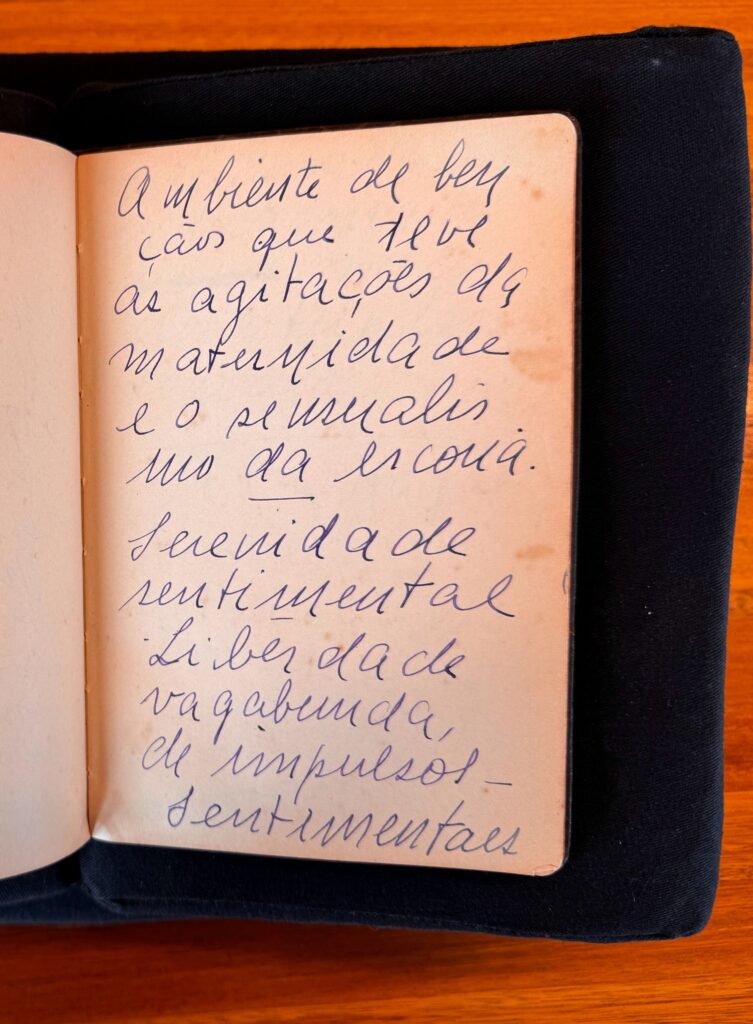 Ambiente de ben
çãos que teve
as agitações da
maternidade
e o sensualis
mo da escoria.
Serenidade
sentimental
Liberdade
vagabunda,
de impulsos –
sentimentaes